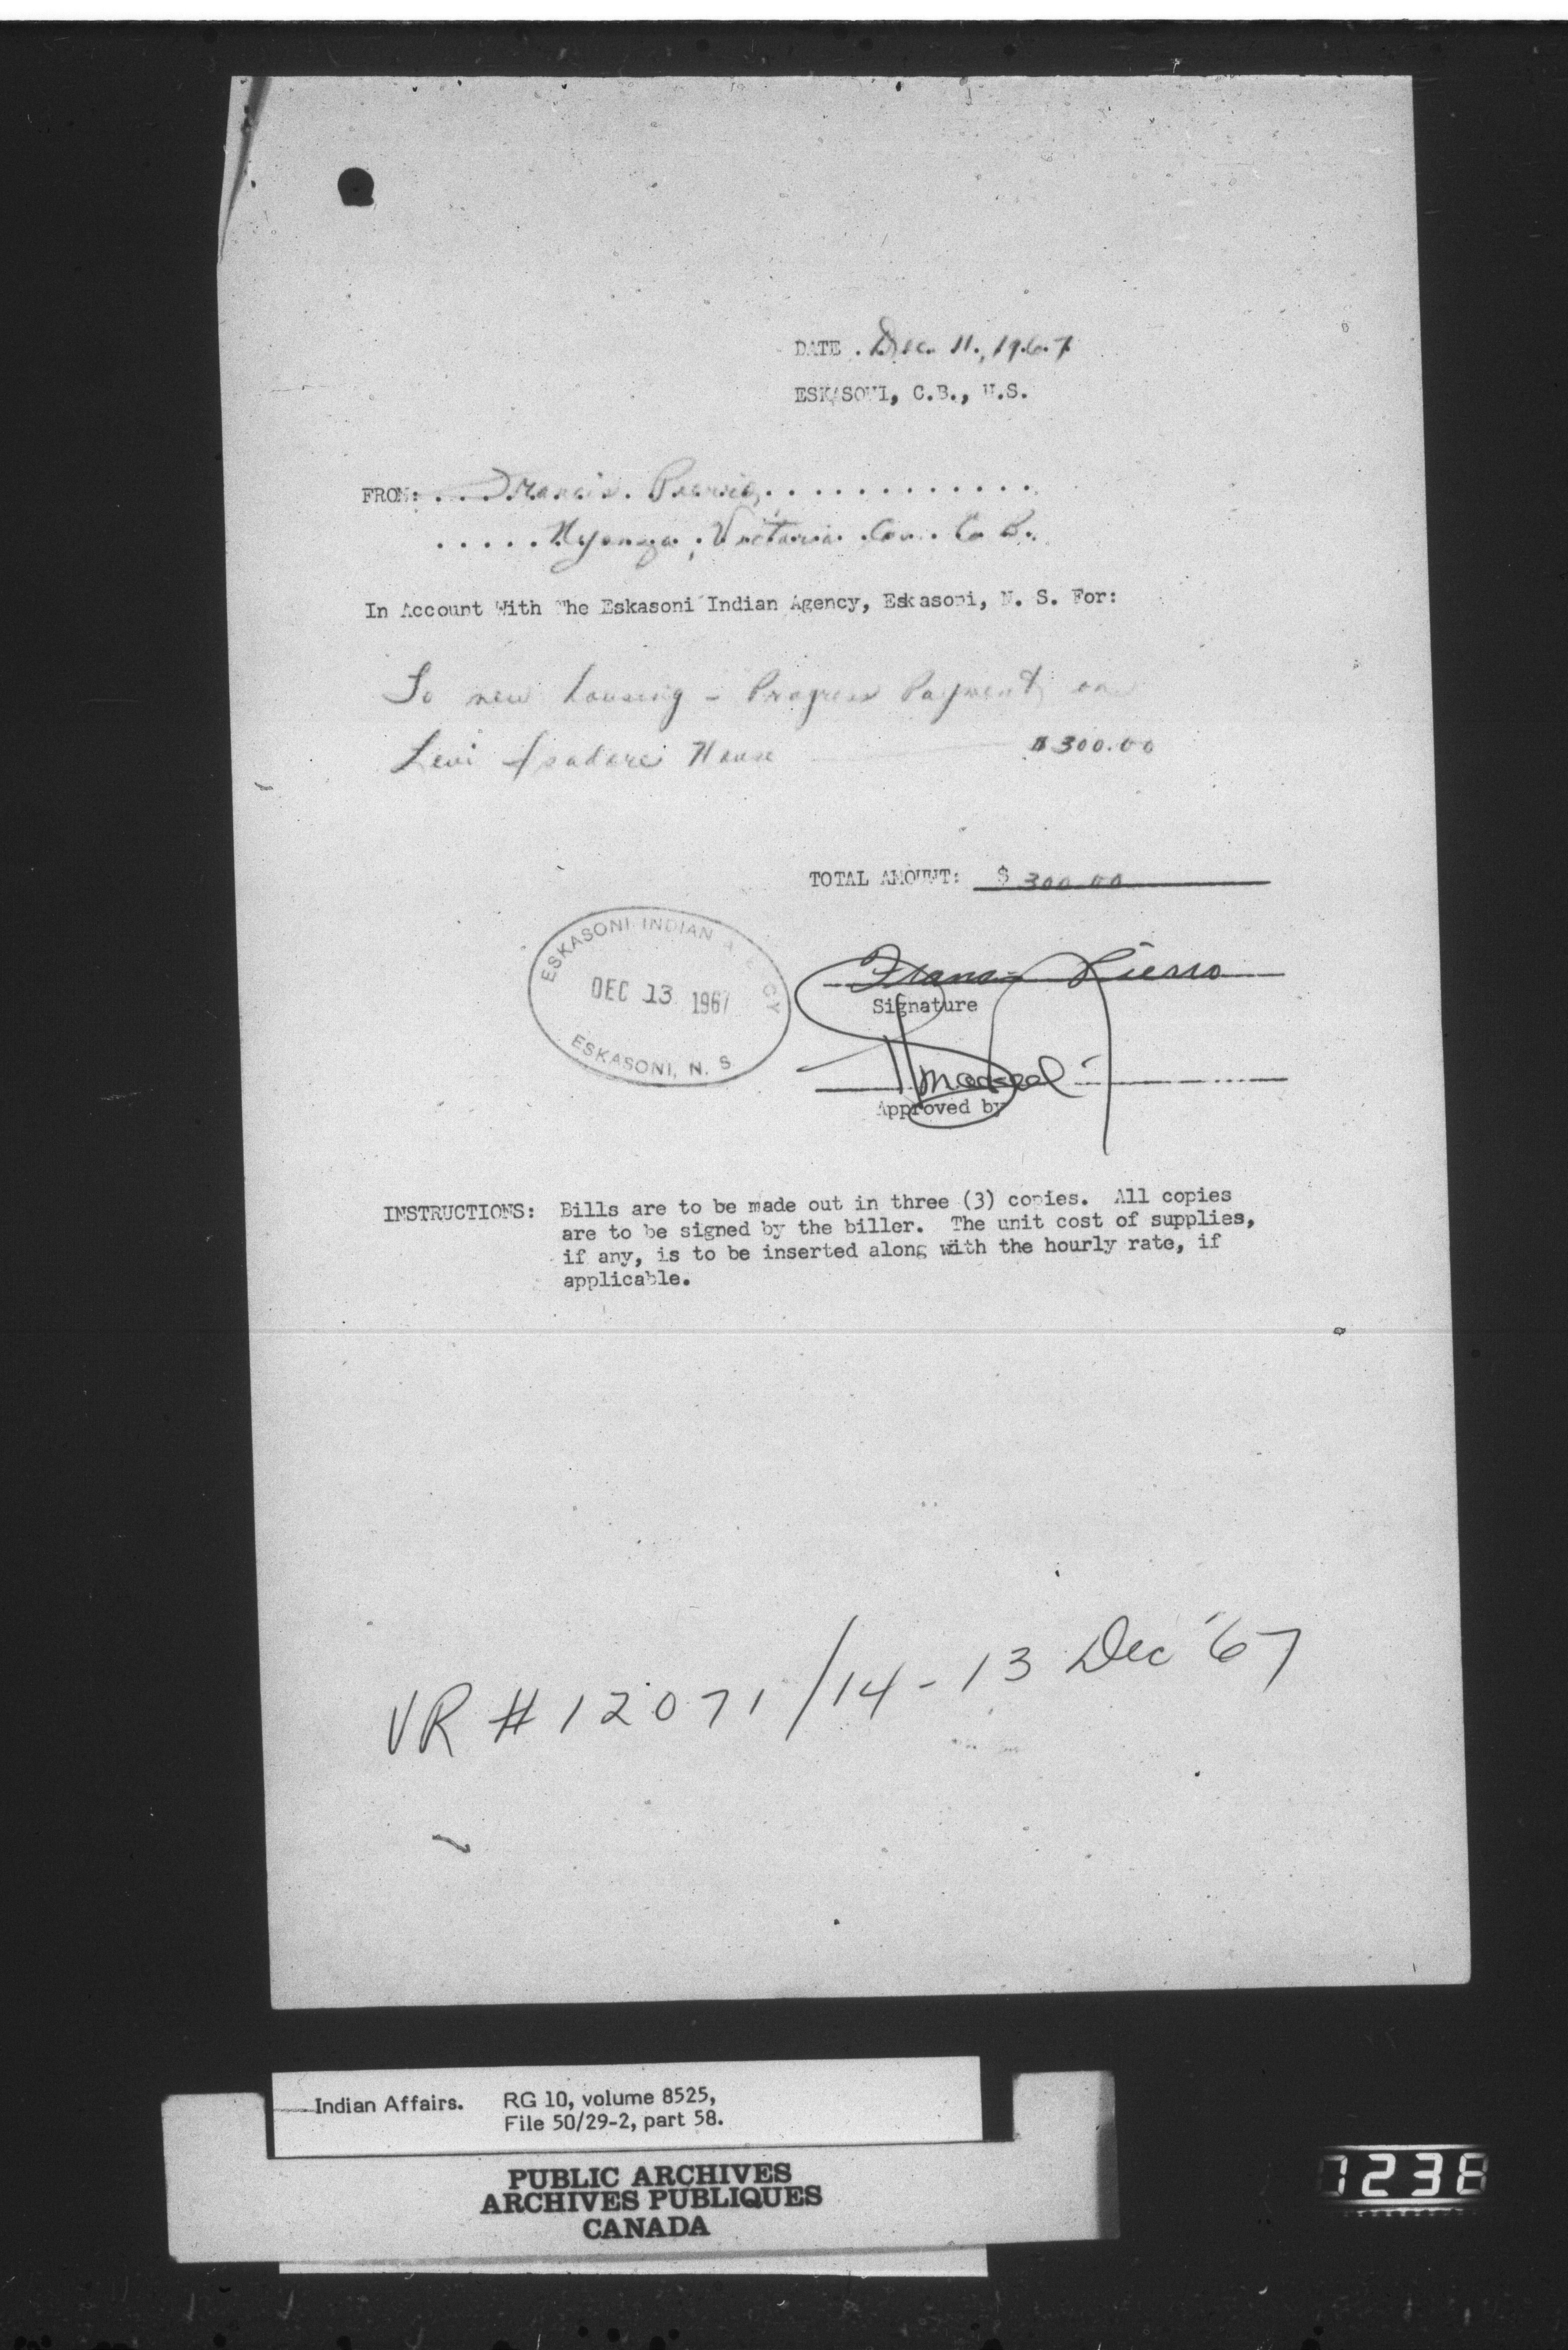 DATE . Dec. 11, 1967
ESKASONI, C.B., N.S.
FROM: . . . Francis Pierro, . . . . . . . . . . . .
. . . . . Nyanza, Victoria Co. C. B.
In Account With The Eskasoni Indian Agency, Eskasoni, N. S. For:
To new housing - Progress Payment on
Levi Isadore House $300.00
TOTAL AMOUNT: $ 300.00
ESKASONI INDIAN AGENCY
DEC 13 1967
ESKASONI, N. S.
Francis Pierro
Signature
Approved by
INSTRUCTIONS: Bills are to be made out in three (3) copies. All copies
are to be signed by the biller. The unit cost of supplies,
if any, is to be inserted along with the hourly rate, if
applicable.
VR # 12071/14 - 13 Dec '67
Indian Affairs. RG 10, volume 8525,
File 50/29-2, part 58.
PUBLIC ARCHIVES
ARCHIVES PUBLIQUES
CANADA
1238